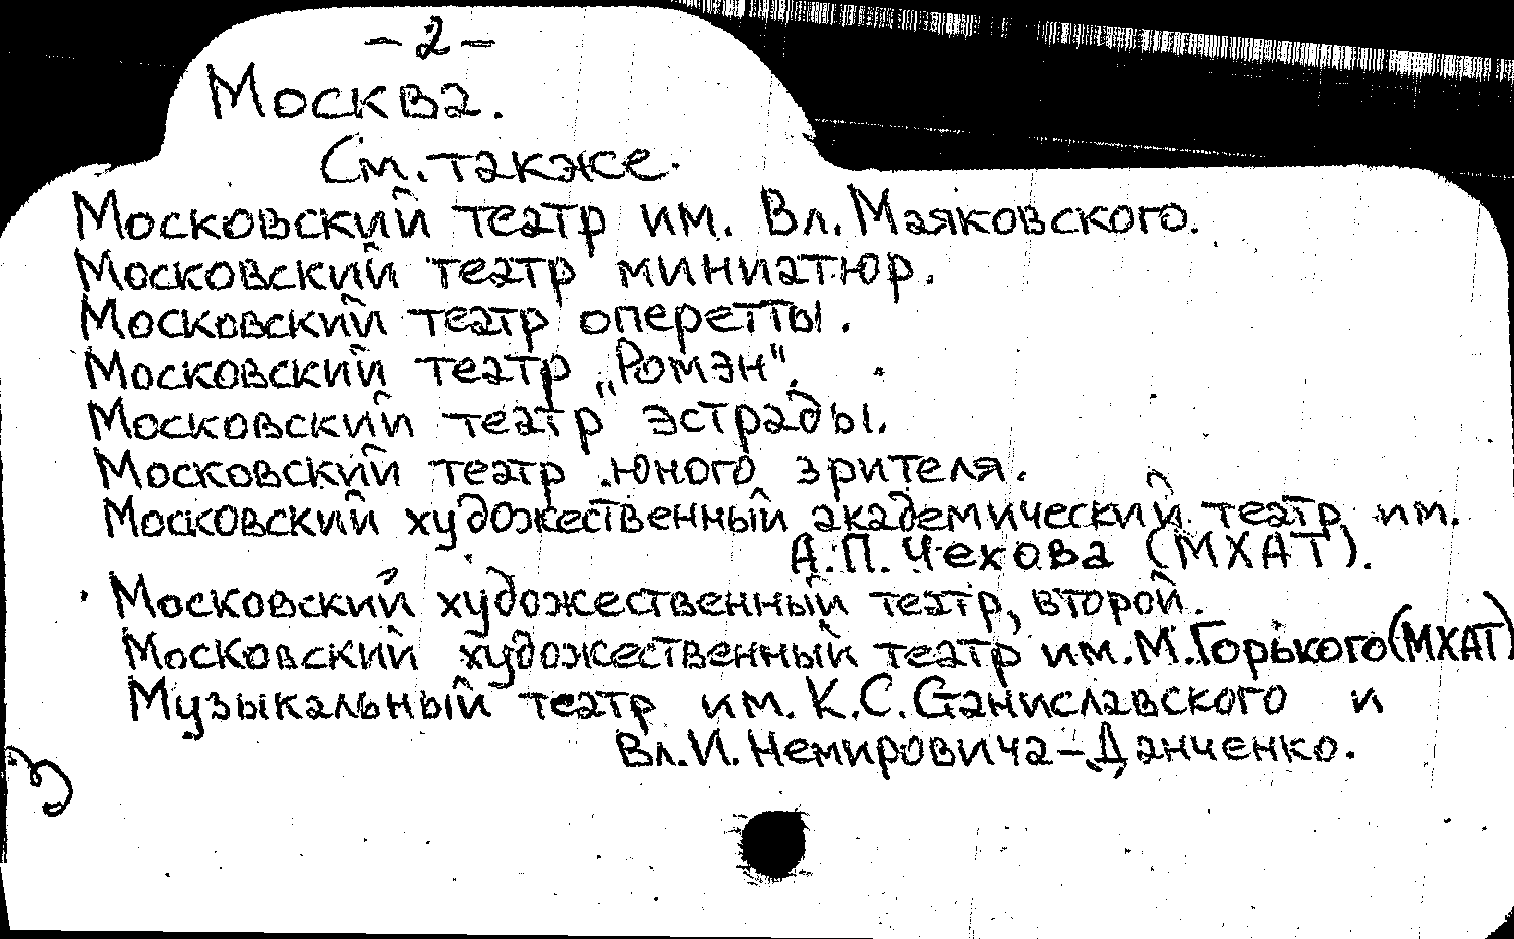 - 2 -
Москва.
См. также.
Московский театр им. Вл. Маяковского.
Московский театр миниатюр.
Московский театр оперетты.
Московский театр „Ромэн“.
Московский театр эстрады.
Московский театр юного зрителя.
Московский художественный академический театр им.
А.П. Чехова (МХАТ).
Московский художественный театр, второй.
Московский художественный театр им. М. Горького (МХАТ)
Музыкальный театр им. К.С. Станиславского и
Вл. И. Немировича-Данченко.